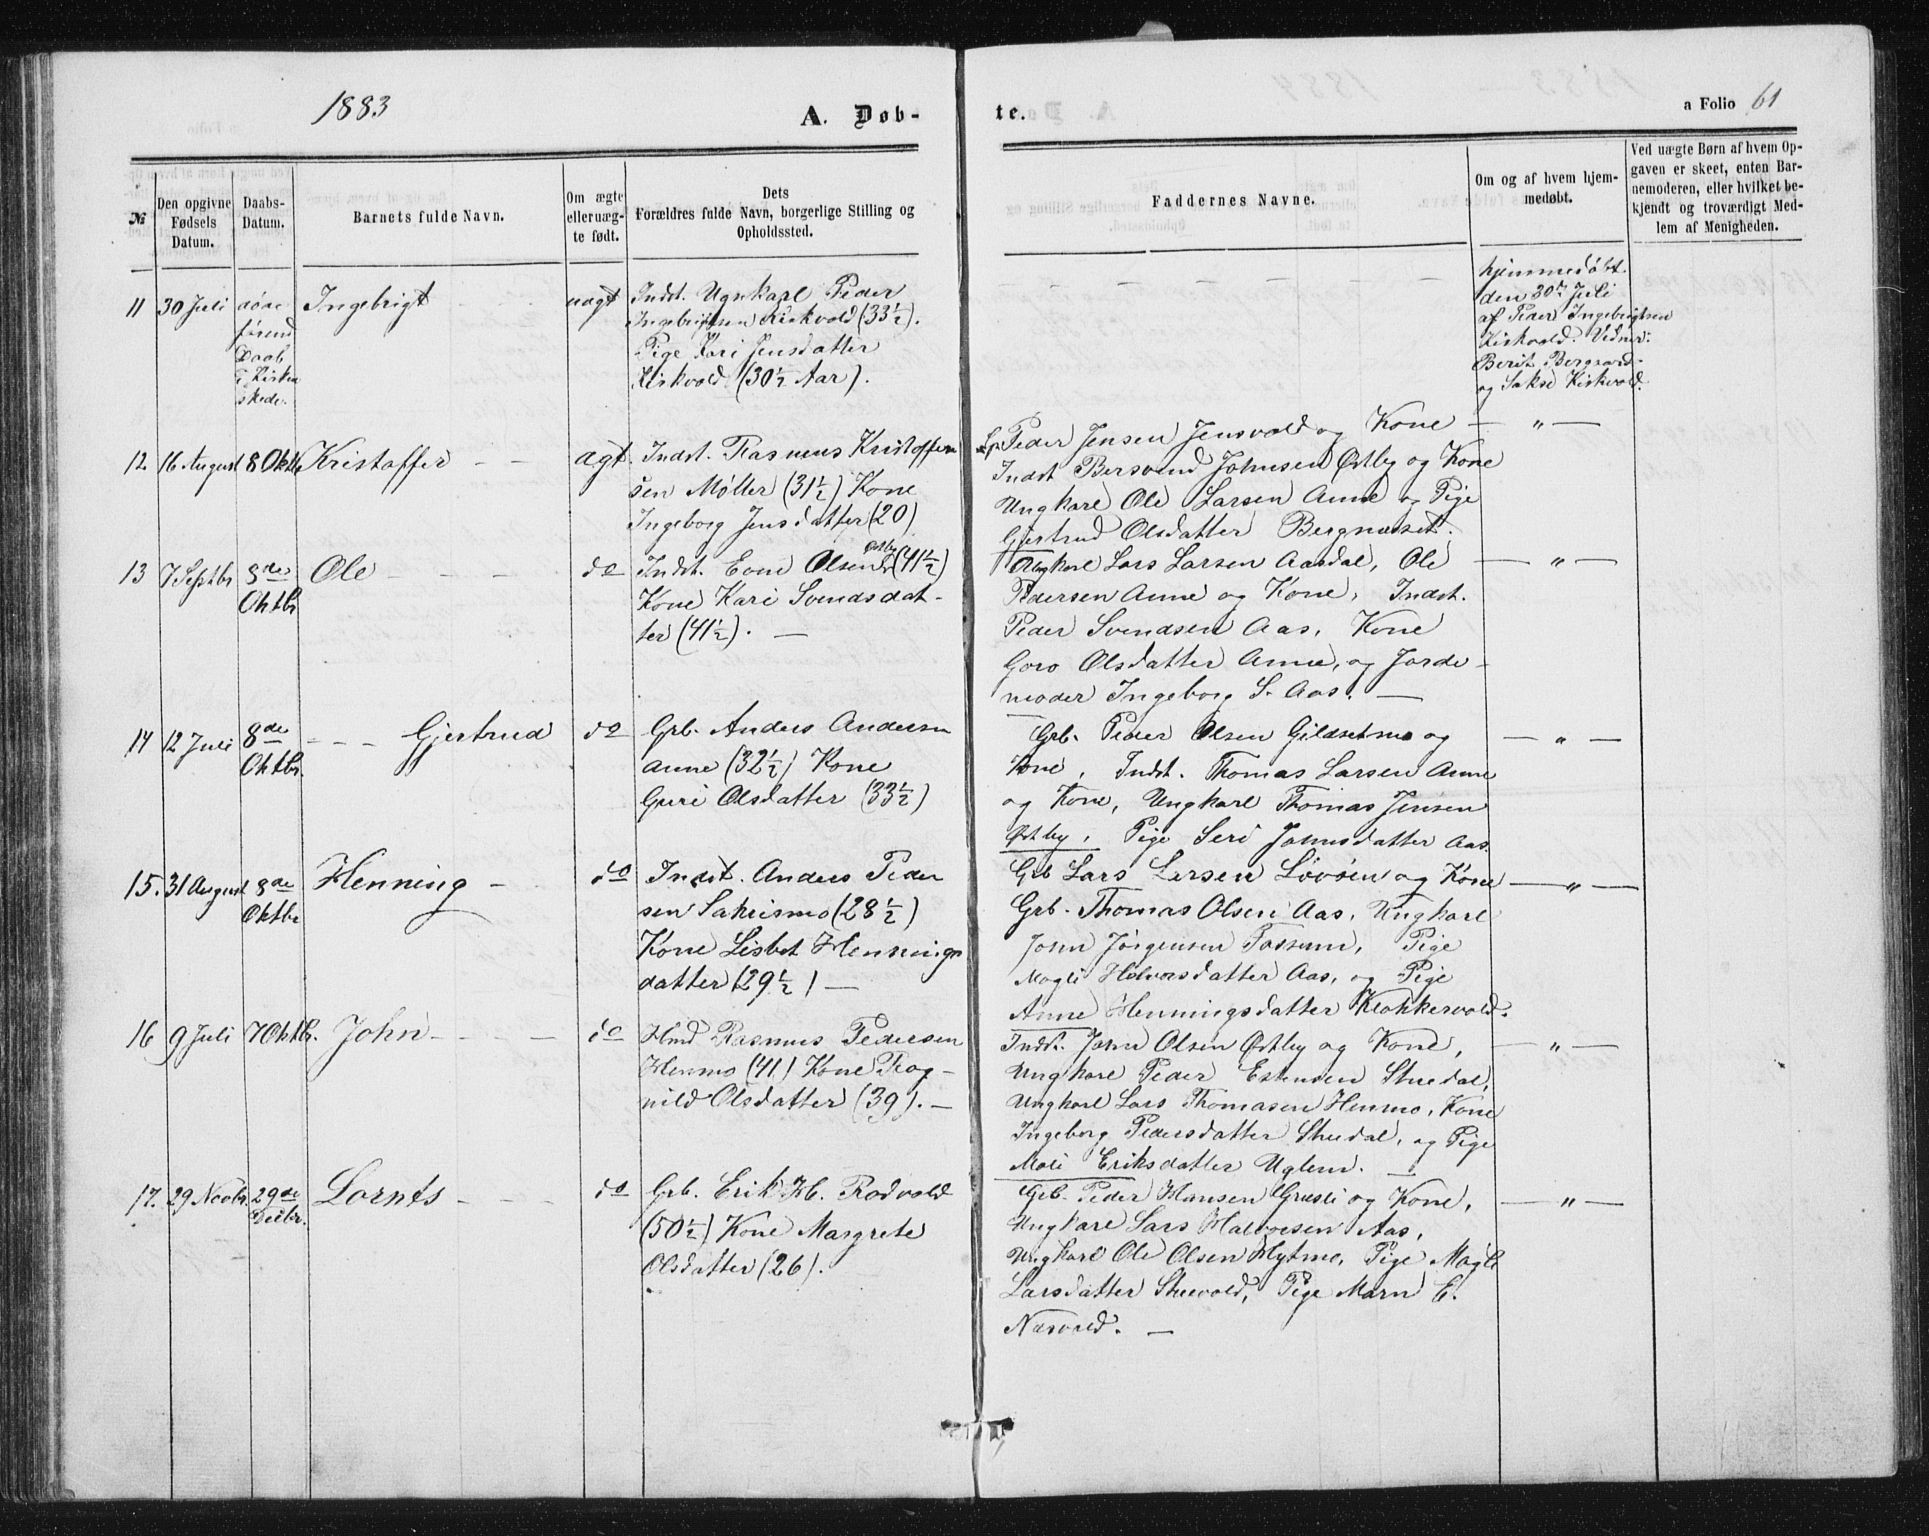 1883
A. Døb-
te.
a Folio 61
№
Den opgivne Fødsels Datum.
Daabs-Datum.
Barnets fulde Navn.
Om ægte elleruæg-te født.
Dets Forældres fulde Navn, borgerlige Stilling og Opholdssted.
Faddernes Navne.
Om og af hvem hjem-medøbt.
Ved uægte Børn af hvem Op-gaven er skeet, enten Bar-nemoderen, eller hvilket be-kjendt og troværdigt Med-lem af Menigheden.
11 30 Juli
døde
førend
Daab
i Kirken
skede.
Ingebrigt
uagt
Indst. Ungkarl Peder
Ingebrigtsen Kirkvold (33½).
Pige Kari Jensdatter
Kirkvold (30½ Aar).
hjemmedøbt
den 30te Juli
af Peder Ingebrigtsen
Kirkvold. Vidner:
Berit Bergaard
og Sakse Kirkvold.
12. 16 August 8 Oktbr Kristoffer
agt.
Indst. Rasmus Kristoffer
sen Møller (31½) Kone
Ingeborg Jensdatter (20)
Peder Jensen Jensvold og Kone — " —
Indst Bersvend Johnsen Østby og Kone
Ungkarl Ole Larsen Aune og Pige
Gjertrud Olsdatter Bergnæset.
13 7 Septbr 8de
Oktbr
Ole
do
Indst. Even Olsen Østby (41½)
Kone Kari Svendsdat-
ter (41½). —
Ungkarl Lars Larsen Aasdal, Ole — " —
Pedersen Aune og Kone, Indst.
Peder Svendsen Aas, Kone
Goro Olsdatter Aune, og Jorde-
moder Ingeborg S. Aas. —
14 12 Juli 8de
Oktbr.
Gjertrud
do
Grb. Anders Andersen
Aune (32½) Kone
Guri Olsdatter (33½)
Grb. Peder Olsen Gildsetmo og — " —
Kone, Indst. Thomas Larsen Aune
og Kone, Ungkarl Thomas Jensen
Østby, Pige Seri Johnsdatter Aas.
15. 31 August 8de
Oktbr
Henning
do
Indst. Anders Peder
sen Sakrismo (28½)
Kone Lisbet Hennings
datter (29½) —
Grb Lars Larsen Løvøen og Kone — " —
Grb. Thomas Olsen Aas, Ungkarl
John Jørgensen Fossum, Pige
Magli Halvorsdatter Aas, og Pige
Anne Henningsdatter Klokkervold.
16 9 Juli 7 Oktbr. John
do
Hmd Rasmus Pedersen
Henmo (41) Kone Rag-
nild Olsdatter (39). —
Indst. John Olsen Østby og Kone, — " —
Ungkarl Peder Estensen Stuedal,
Ungkarl Lars Thomasen Henmo, Kone
Ingeborg Pedersdatter Stuedal, og Pige
Mali Eriksdatter Uglem. —
17. 29 Novbr. 29de
Decbr.
Lornts
do
Grb. Erik H. Rodvold
(50½) Kone Margrete
Olsdatter (26).
Grb. Peder Hansen Græsli og Kone, — " —
Ungkarl Lars Halvorsen Aas,
Ungkarl Ole Olsen Hytmo, Pige Magli
Larsdatter Stuevold, Pige Marn E.
Næsvold. —